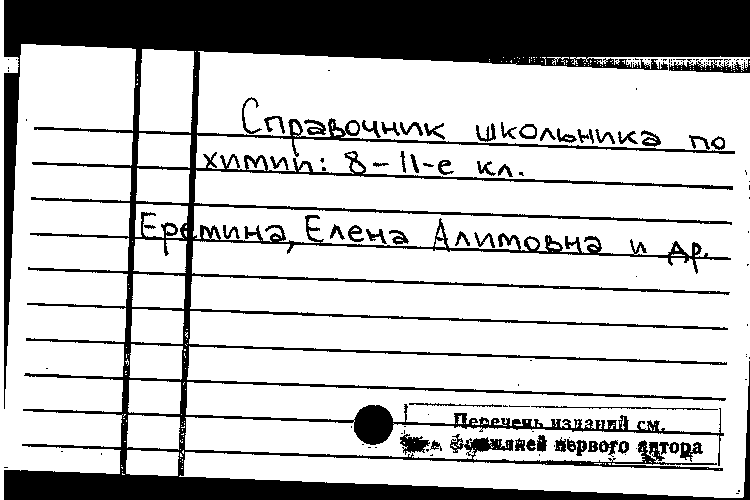 Справочник школьника по
химии: 8-11-е кл.
Еремина, Елена Алимовна и др.
Перечень изданий см.
фамилией первого автора